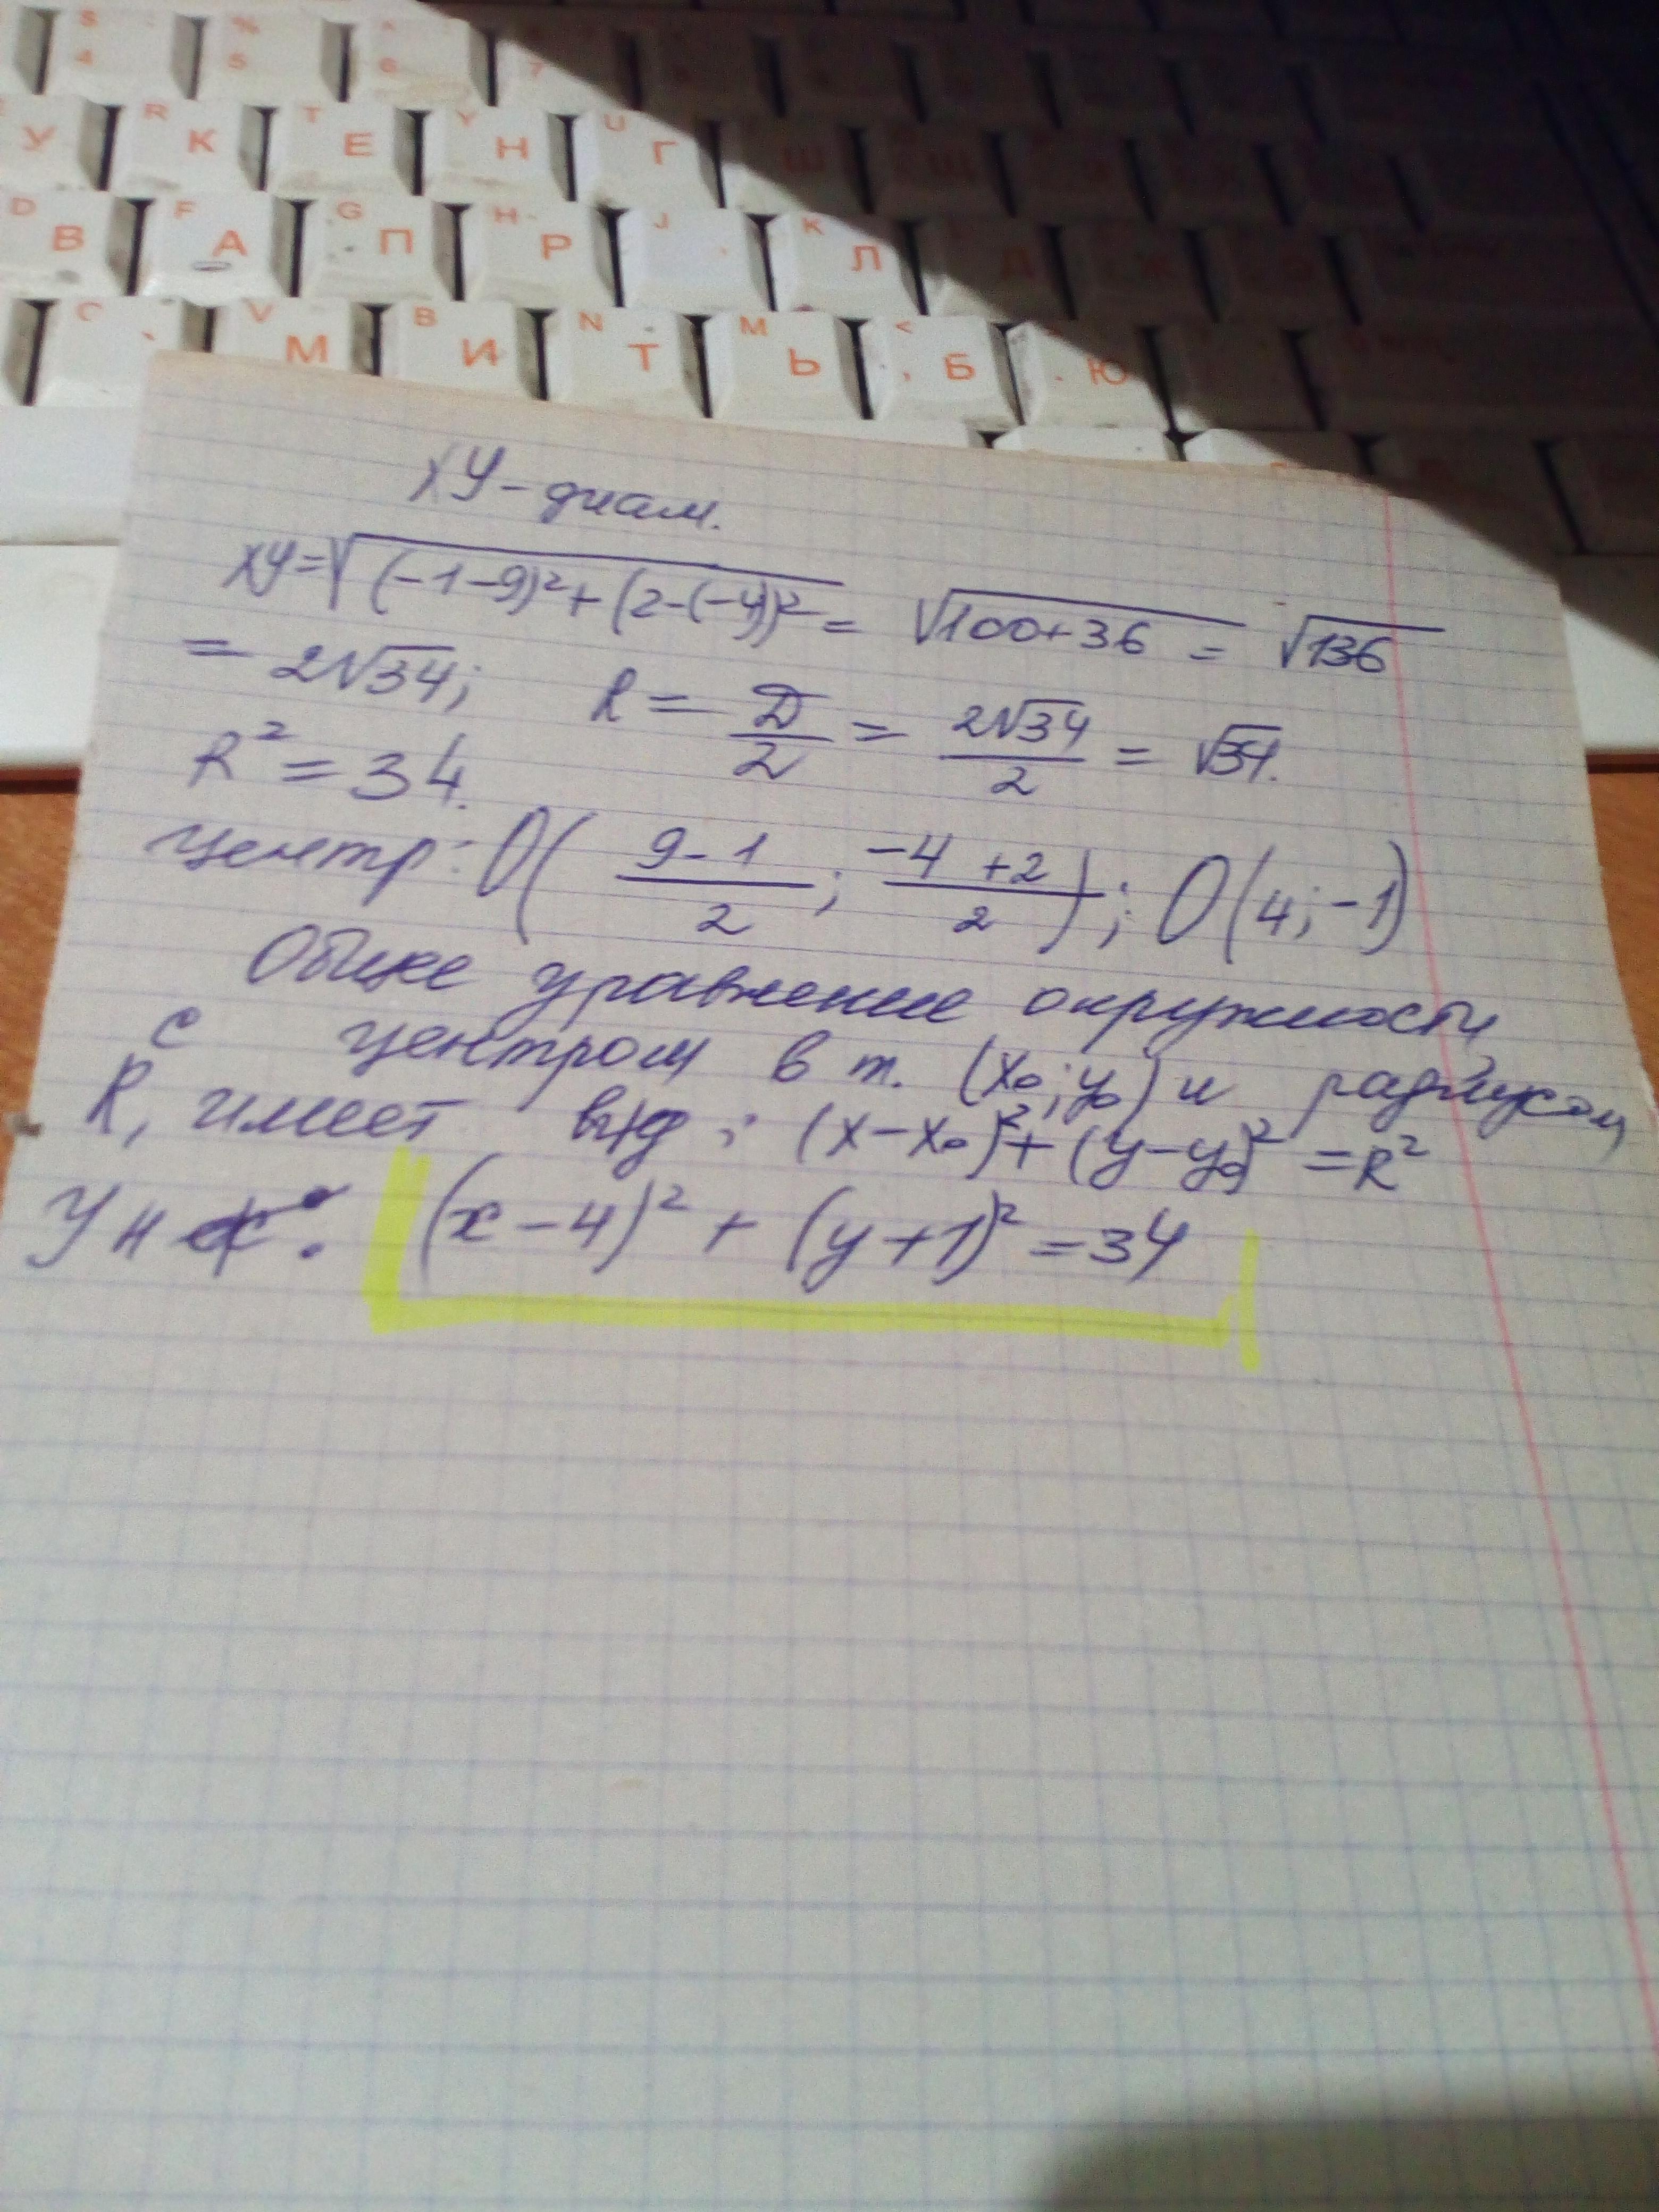 $ % ^
4 5 6 7
R T Y U
У К Е Н Г Ш Щ
D F G H J K
В А П Р Л Д Ж
C V B N M <
М И Т Ь , Б . Ю
XY - диам.
XY = √((-1-9)² + (2-(-4))²) = √(100+36) = √136
= 2√34; R = D/2 = 2√34/2 = √34.
R² = 34.
центр: O( (9-1)/2 ; (-4+2)/2 ); O(4;-1)
Общее уравнение окружности
с центром в т. (x₀;y₀) и радиусом
R, имеет вид: (x-x₀)² + (y-y₀)² = R²
У н : (x-4)² + (y+1)² = 34